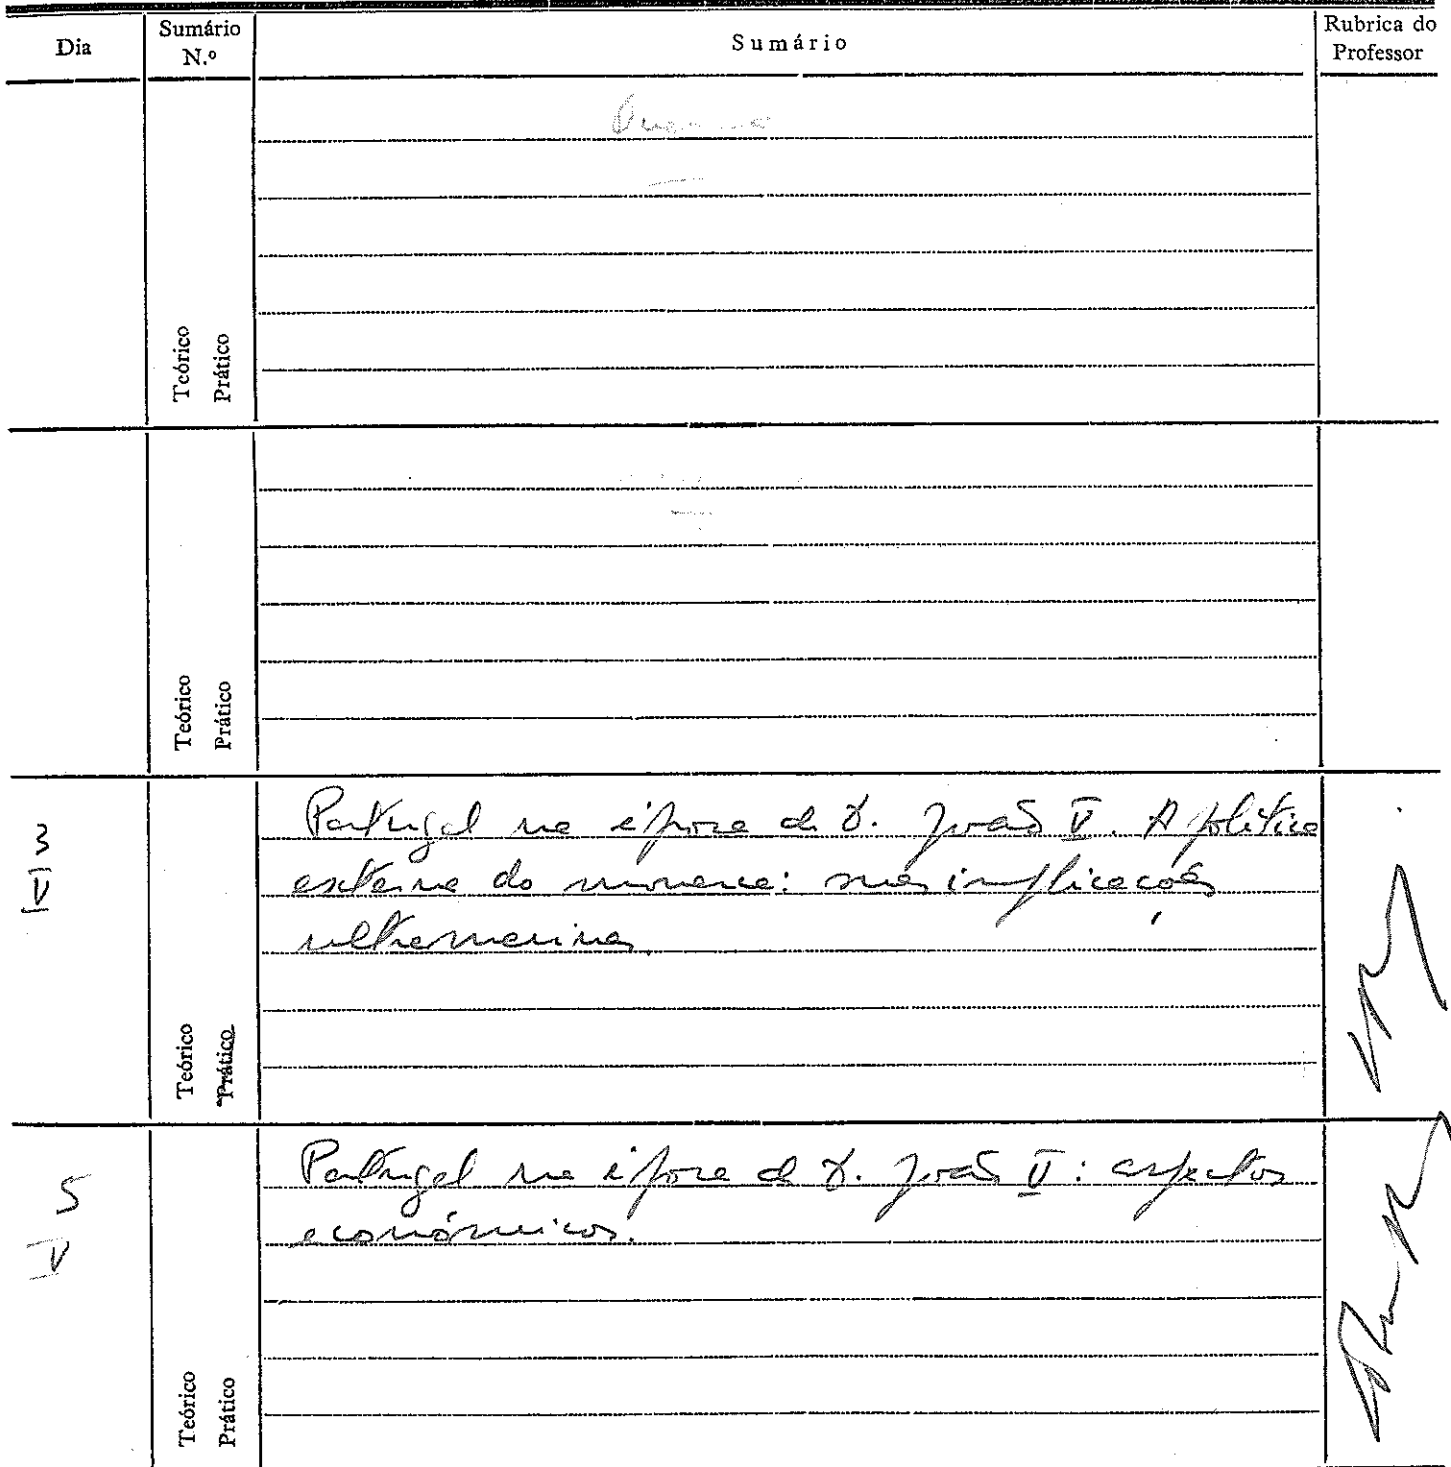 Dia Sumário N.º Sumário Rubrica do Professor
Teórico Prático
Teórico Prático
3 V
Portugal na época de D. João V. A política
externa do monarca: suas implicações
ultramarinas.
Teórico Prático
5 V
Portugal na época de D. João V: aspectos
económicos.
Teórico Prático